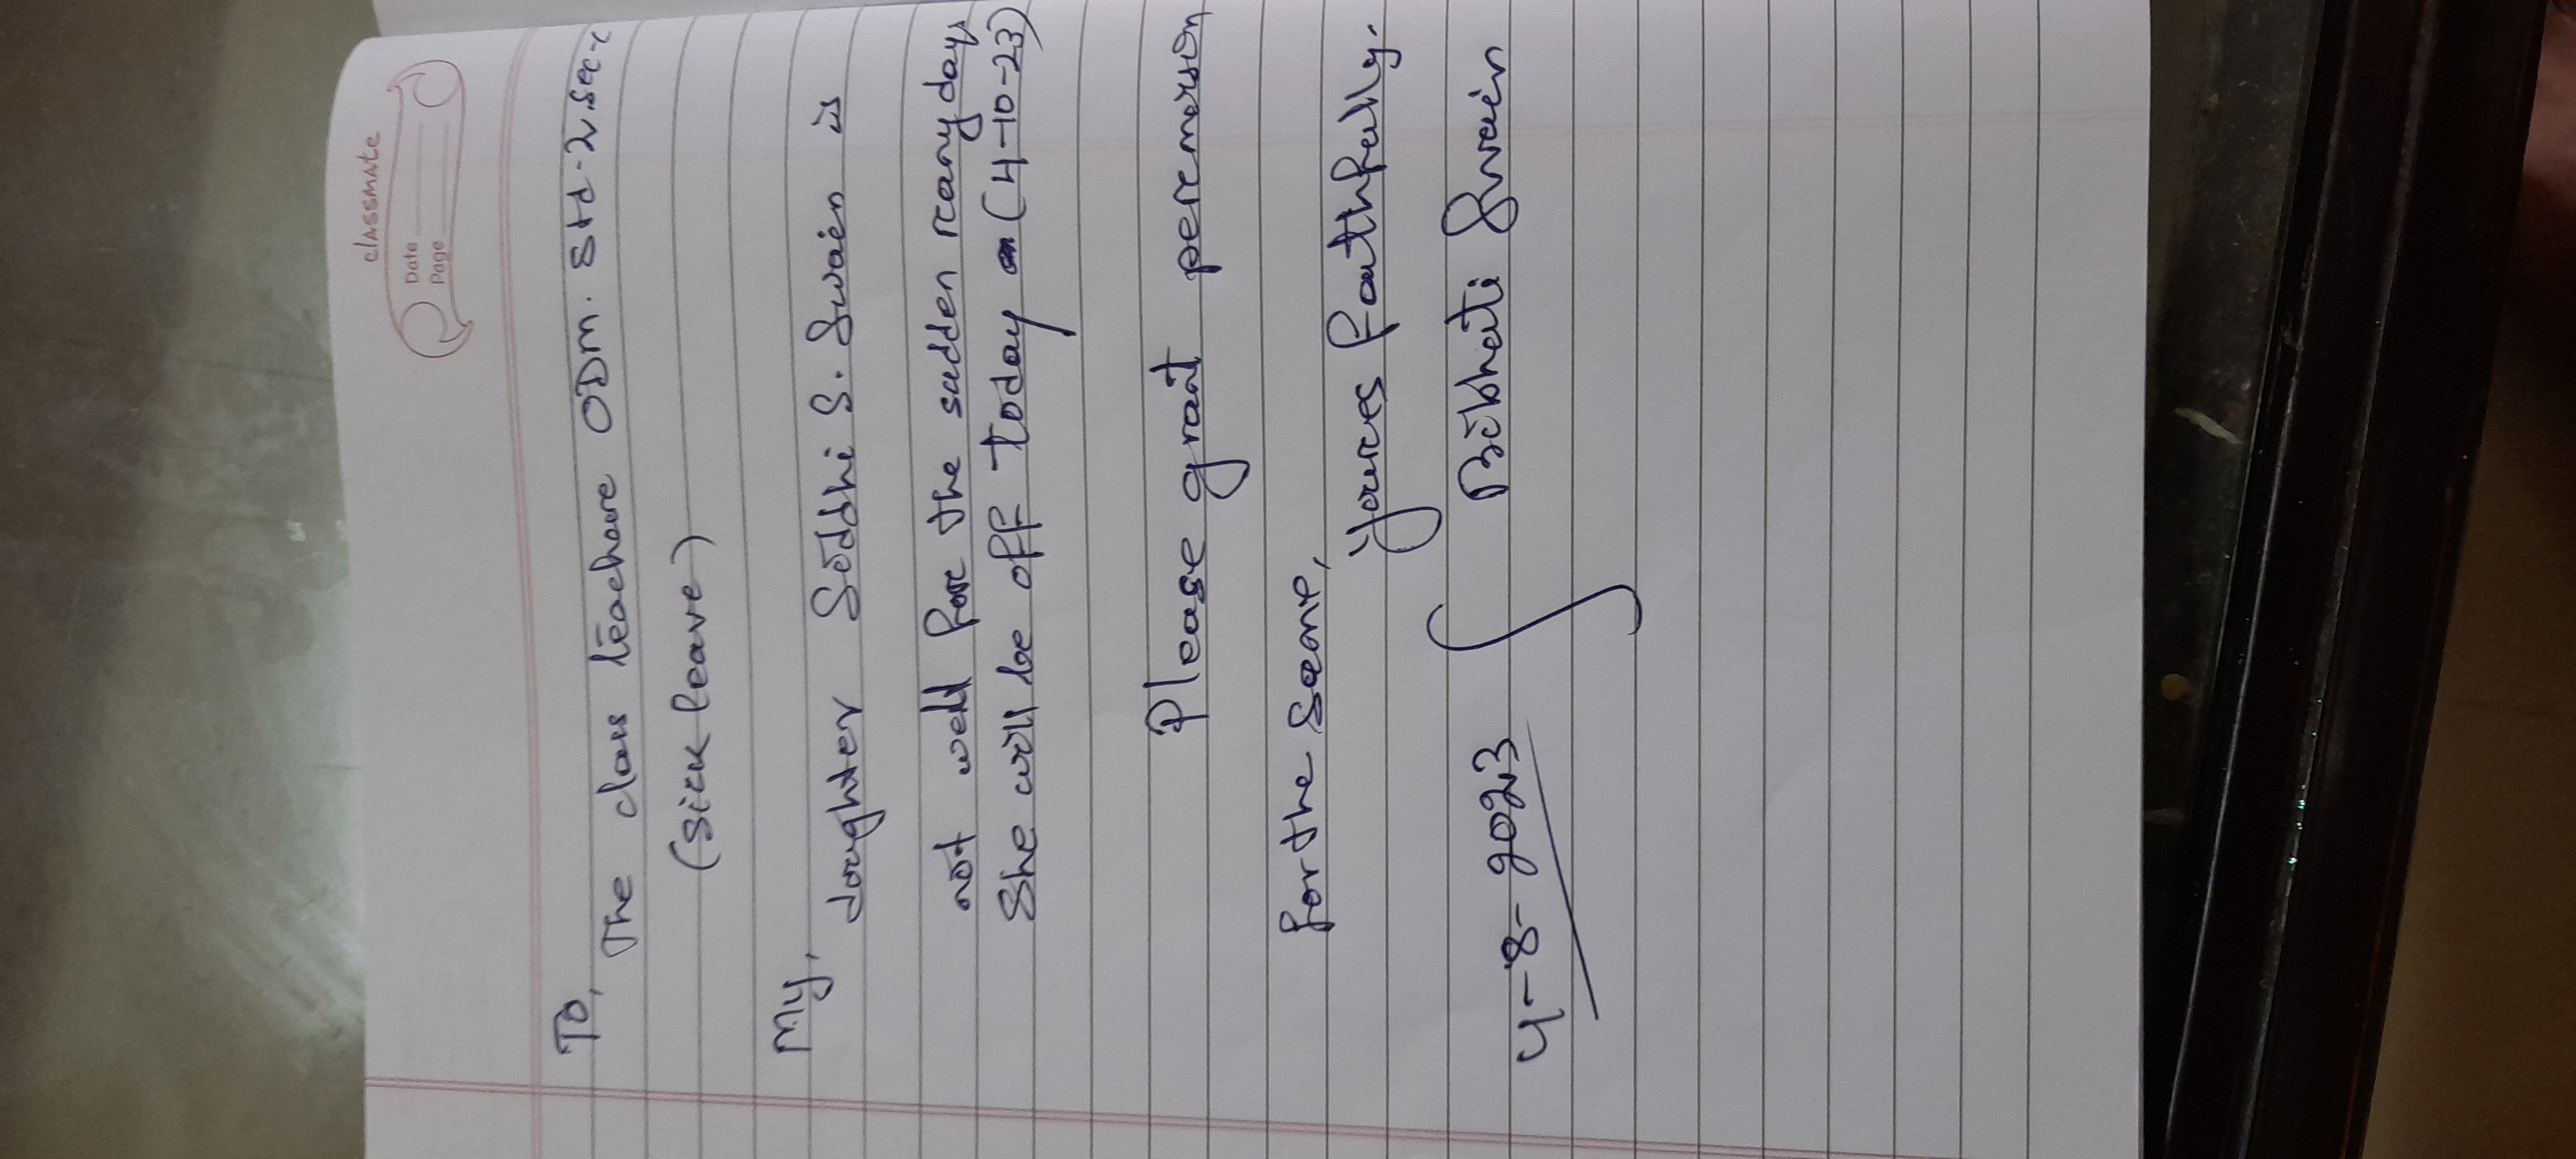 classmate
Date
Page
To,
The class teachere ODM. Std-2. sec-
(Sick leave)
My,
doughter Siddhi S. Swain is
not well for the sudden reany days
She will be off today (4-10-23)
Please grant peremorson
for the same,
Youres Faithfully.
Bibhuti Swain
4-8-2023